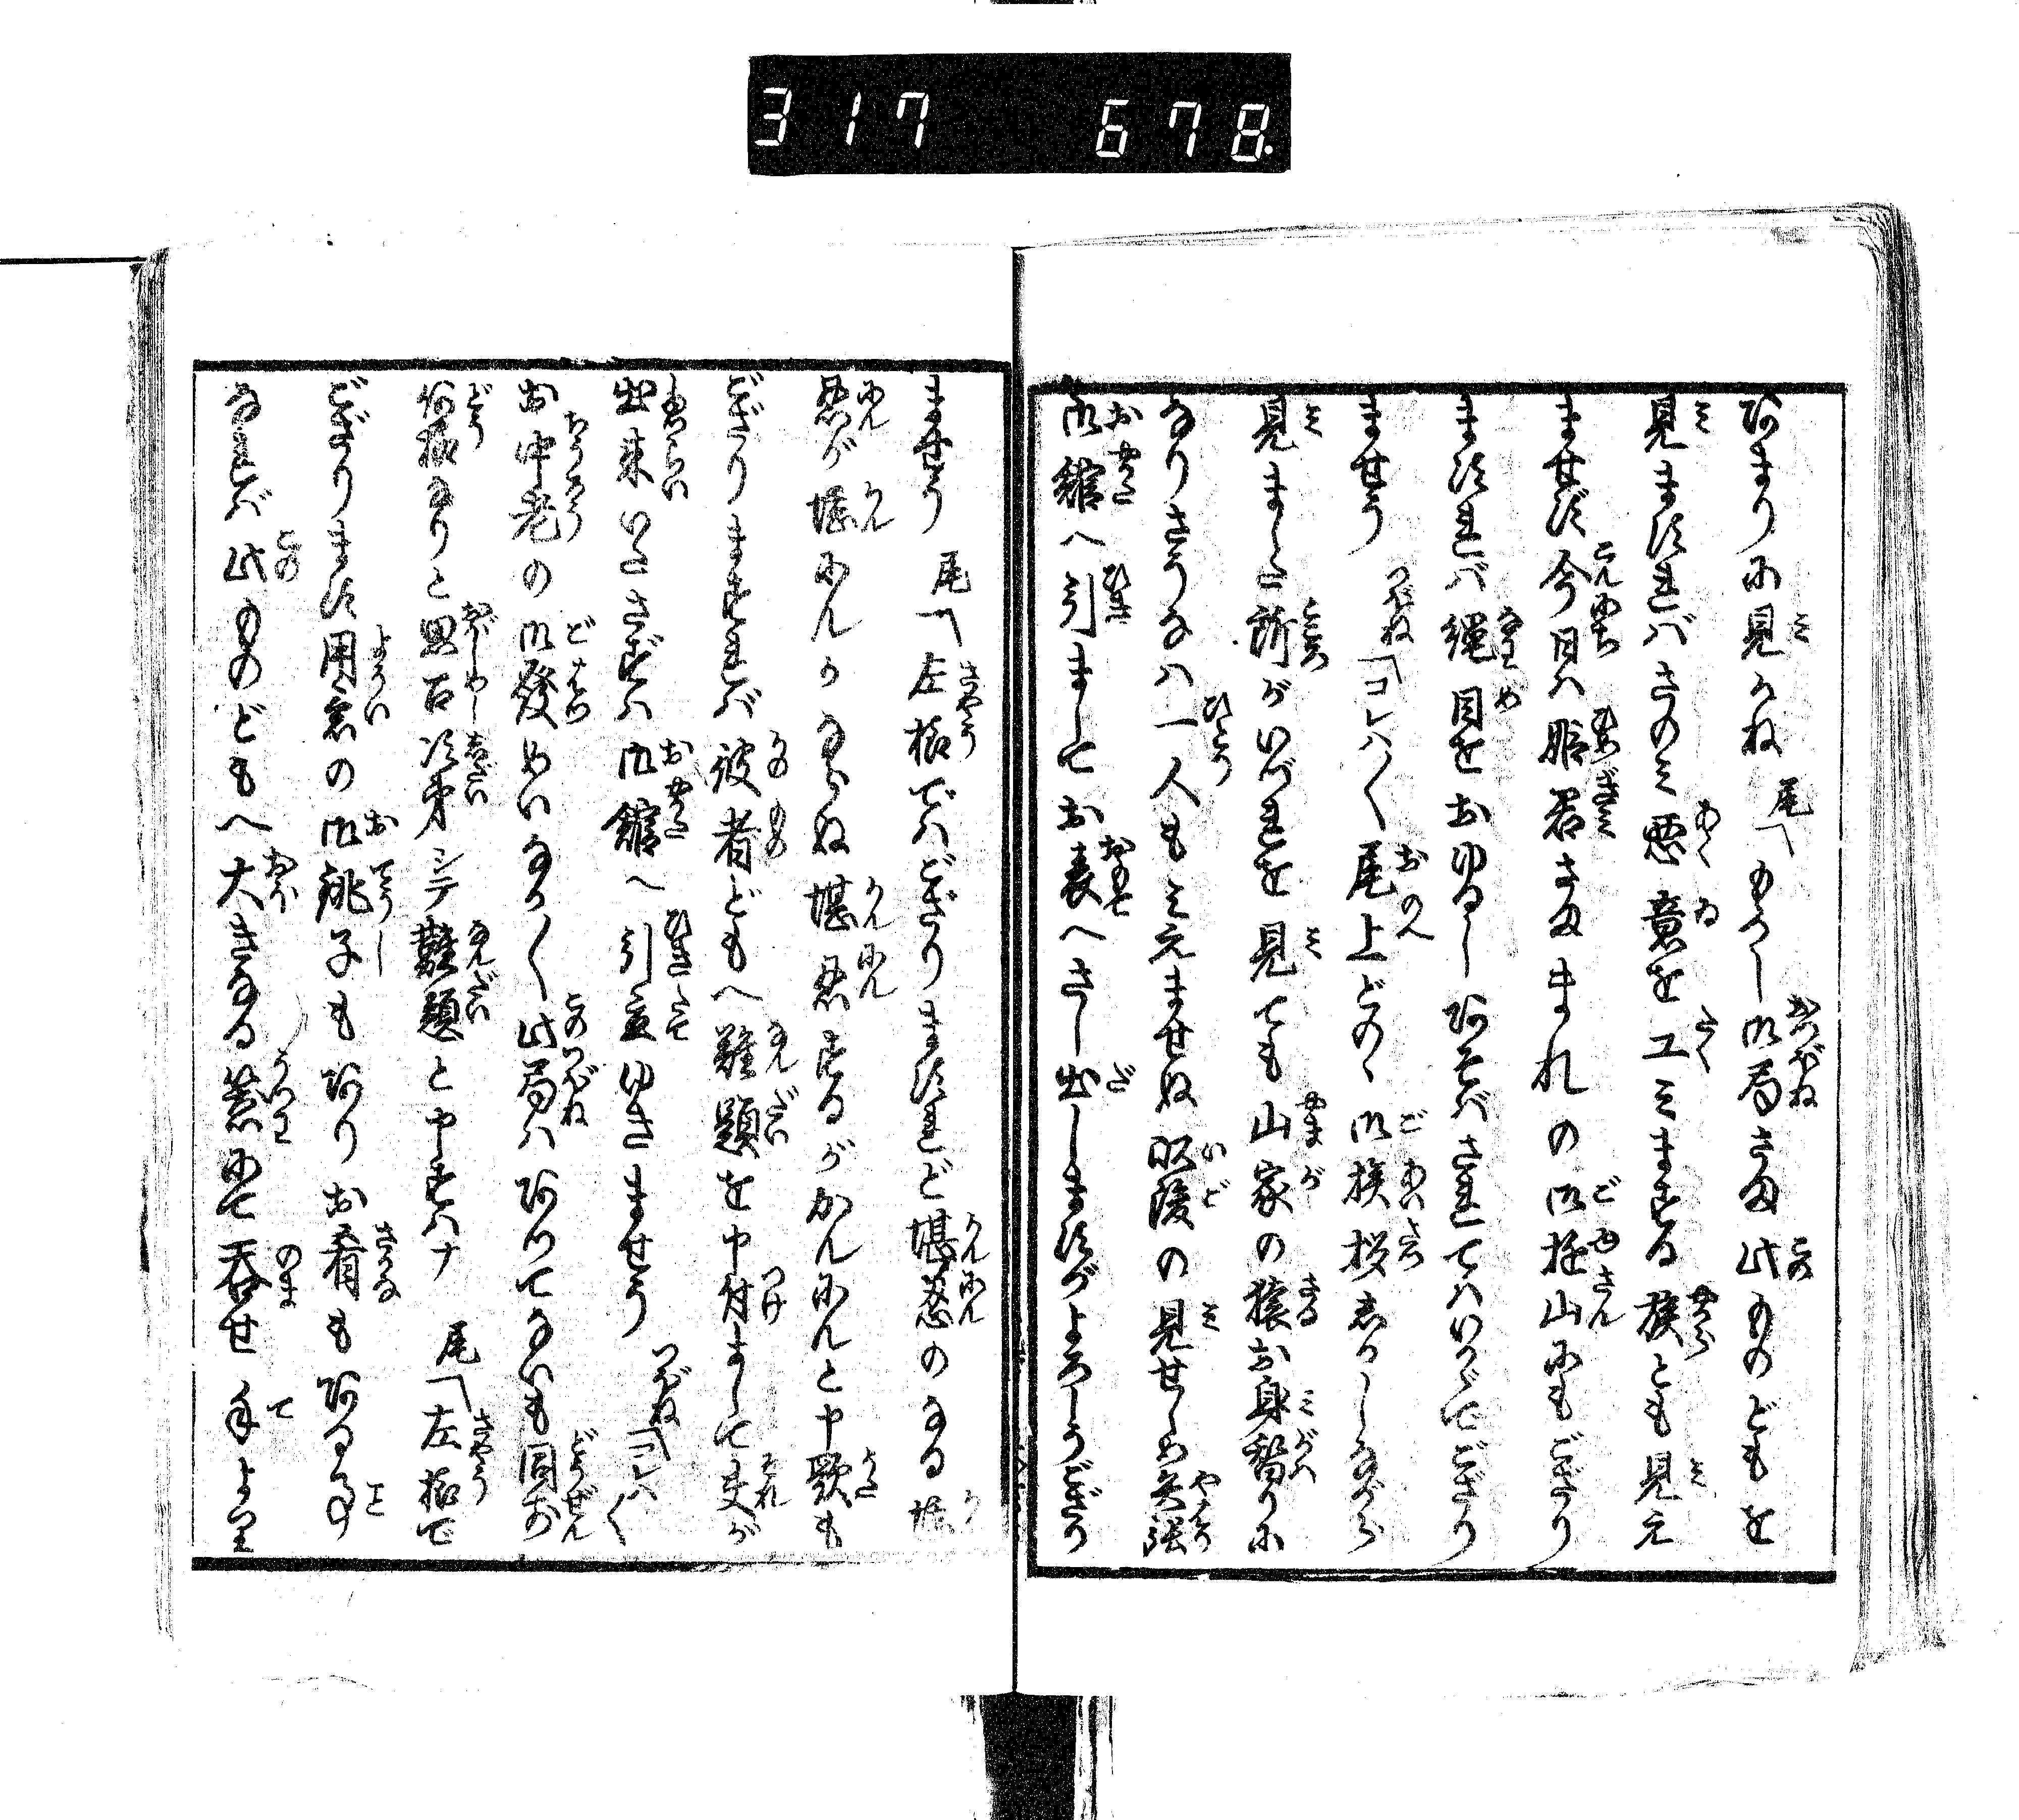 317 678.
あまりに見かね 尾「もうし御局さま此ものどもを
見ますればさのみ悪意を工みまする族とも見え
ませず今日は姫君さままれの御遊山にもござり
ますれば縄目をおゆるしあそばされてはいかゞでござり
ませう つぼね「コレハ〱尾上どの御挨拶しかしながら
見ました所がいづれを見ても山家の猿お身替りに
なりさうなは一人もみえませぬ の見せしめ矢張
御館へ引ましてお表へさし出しますがよろしうござり
ませう 尾「左様でハござりますれど堪忍のなる堪
忍が堪にんかならぬ堪忍するがかんにんと申歌も
ござりますれば彼者どもへ難題を申付まして夫が
出来いたさずハ御館へ引立ゆきませう つぼね「コレハ〱
お中老の御發めいなか〱此局ハあつてないも同前
何様なりと思召次第シテ難題と申すハナ 尾「左様で
ござりますす用意の御銚子もありお肴もある事
なれば此ものどもへ大きなる蓋にて呑せ手より